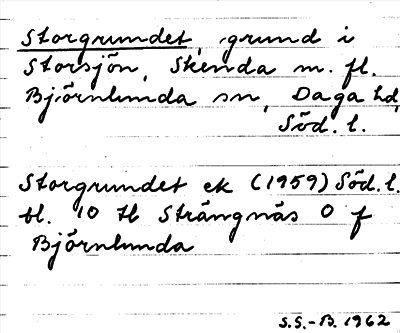 Storgrundet, grund i
Storsjön, Skenda m. fl.
Björnlunda sn, Daga hd,
Söd. l.
Storgrundet ek (1959) Söd. l.
bl. 10 H Strängnäs O f
Björnlunda
S.S.-B. 1962